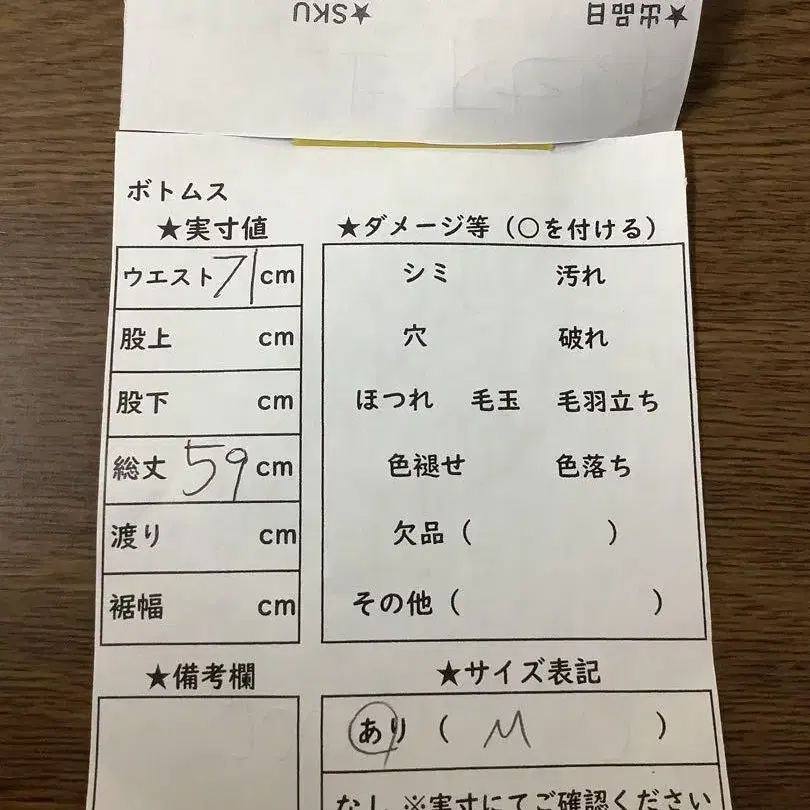 ★SKU ★出品日
ボトムス
★実寸値
ウエスト 71 cm
股上 cm
股下 cm
総丈 59 cm
渡り cm
裾幅 cm
★ダメージ等(○を付ける)
シミ 汚れ
穴 破れ
ほつれ 毛玉 毛羽立ち
色褪せ 色落ち
欠品( )
その他( )
★備考欄
★サイズ表記
あり( M )
なし ※実寸にてご確認ください